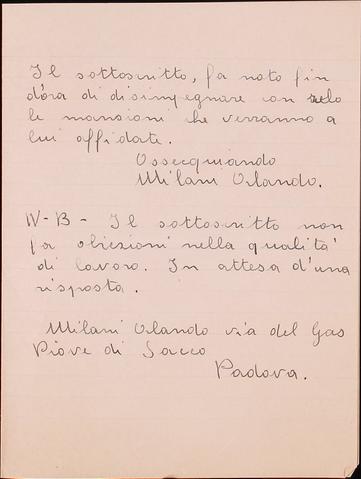 Il sottoscritto, fa noto fin
d'ora di disimpegnare con zelo
le mansioni che verranno a
lui affidate.
Ossequiando
Milani Orlando.
N-B- Il sottoscritto non
fa obiezioni nella qualità
di lavoro. In attesa d'una
risposta.
Milani Orlando via del Gas
Piove di Sacco
Padova.